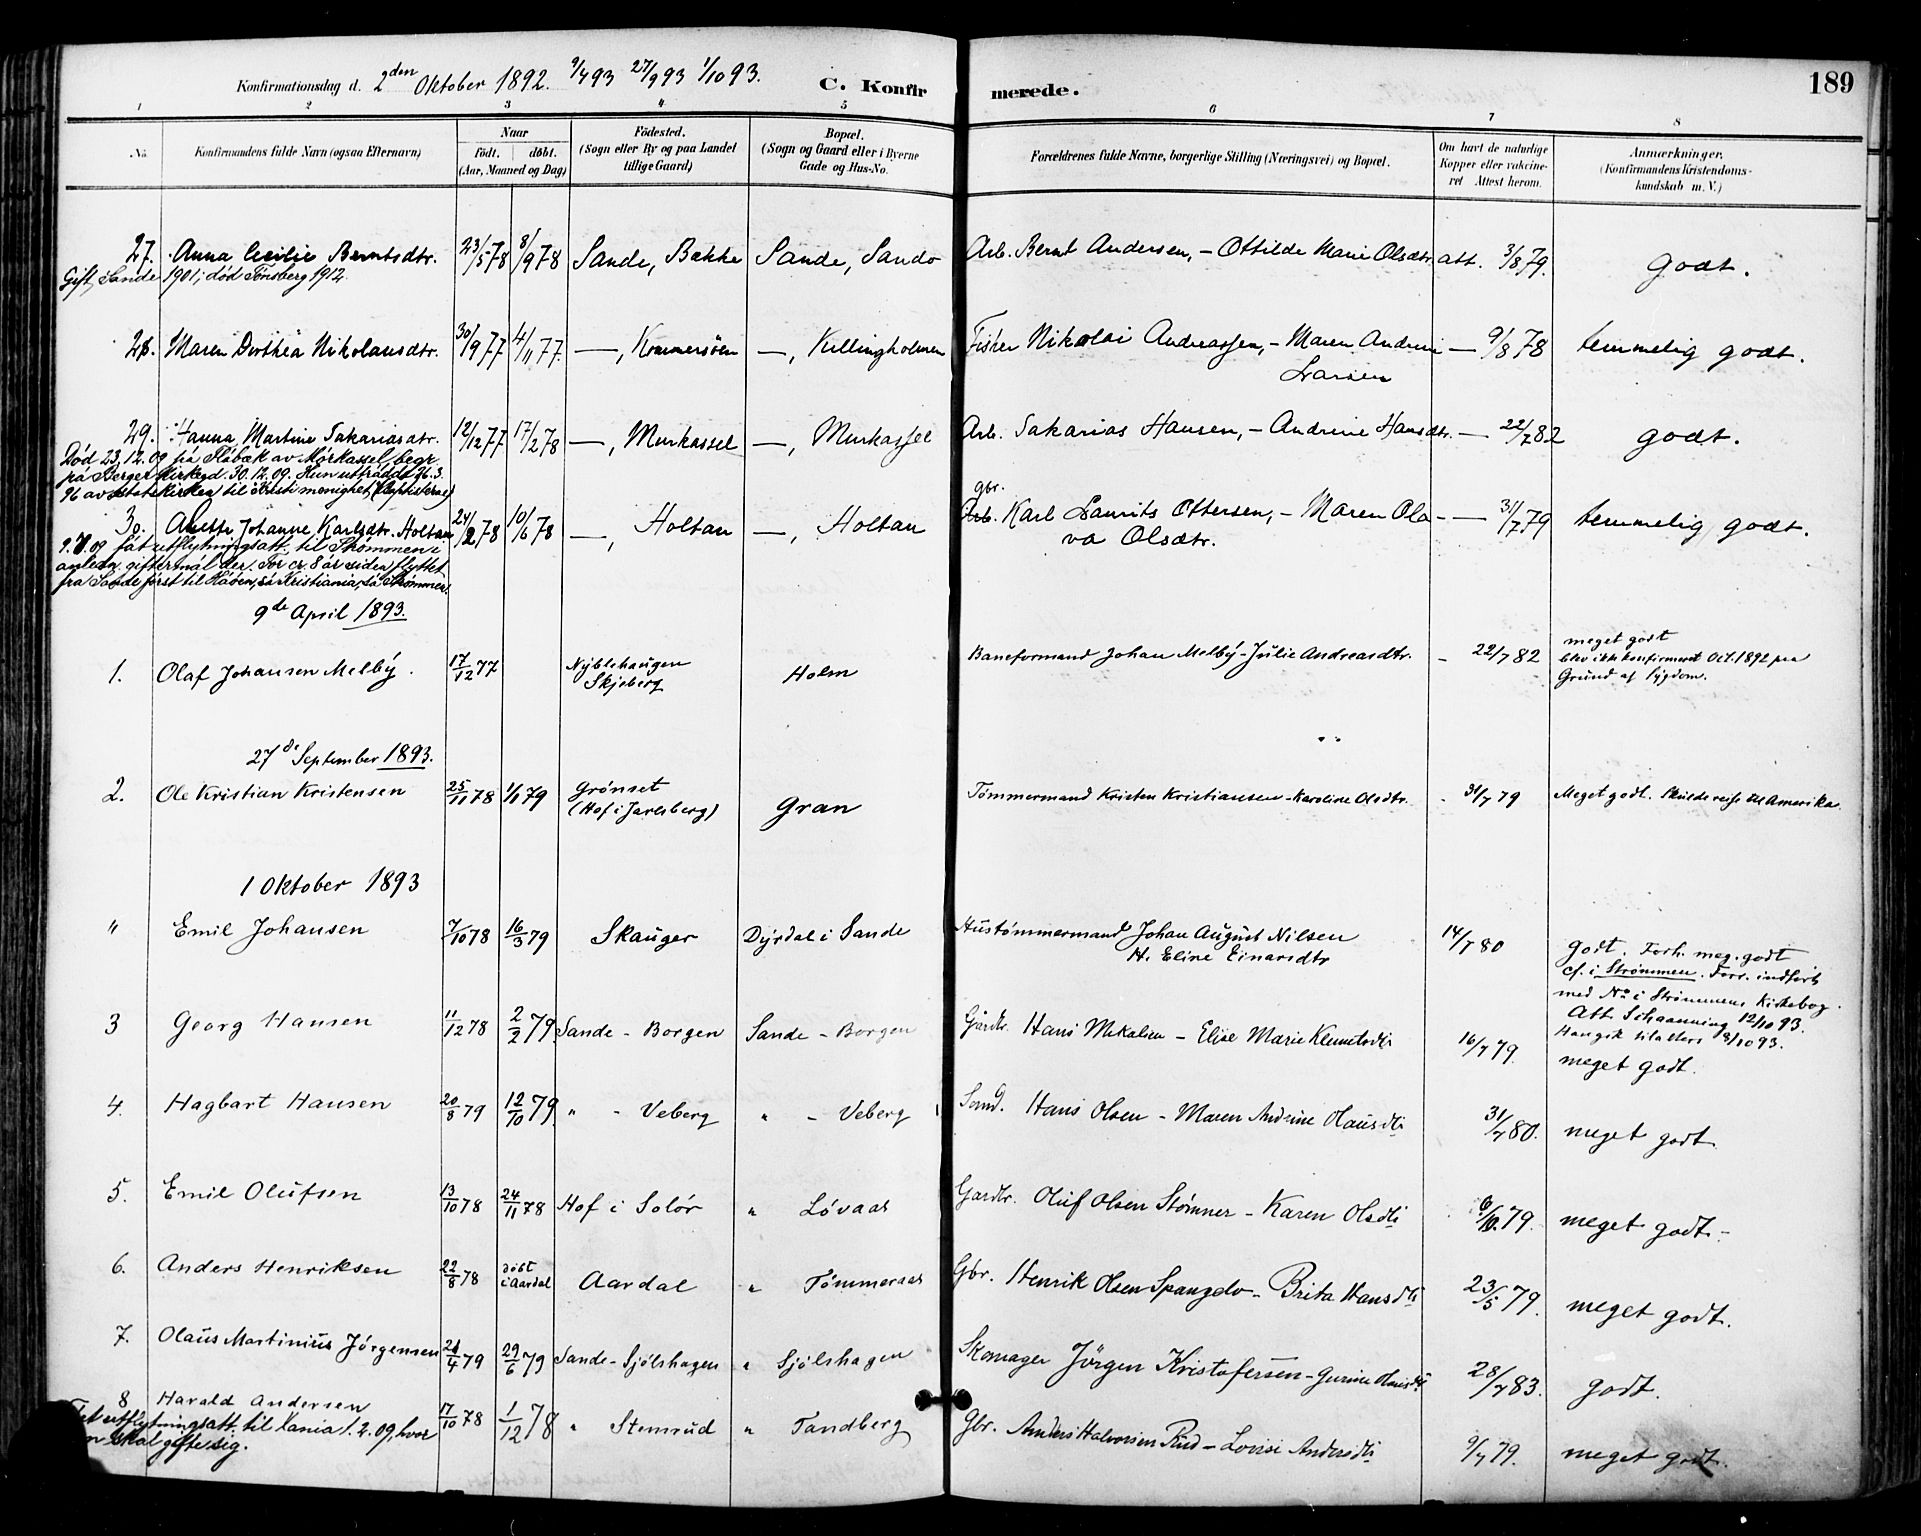 Konfirmationsdag d. 2den Oktober 1892. 9/4 93 27/9 93 1/10 93. C. Konfirmerede. 189
1 2 3 4 5 6 7 8
No. Konfirmandens fulde Navn (ogsaa Efternavn) Naar født. døbt. (Aar, Maaned og Dag) Fødested. (Sogn eller By og paa Landet tillige Gaard) Bopæl. (Sogn og Gaard eller i Byerne Gade og Hus-No. Forældrenes fulde Navne, borgerlige Stilling (Næringsvei) og Bopæl. Om havt de naturlige Kopper eller vakcineret Attest herom. Anmærkninger. (Konfirmandens Kristendomskundskab m. V.)
27. Anna Cecilie Berntsdtr. 23/5 78 8/9 78 Sande, Bække Sande, Sando Arb. Bernt Andersen, - Ottilde Marie Olsdtr. att. 3/8 79. Godt.
Gift, Sande 1901; død Tønsberg 1912.
28. Maren Dorthea Nikolausdtr. 30/9 77 4/11 77. —, Kommersøen —, Killingholmen Fisker Nikolai Andreassen, - Maren Andrine — 9/8 78 temmelig godt.
Larsen
29. Hanna Martine Sakariasdtr. 12/12 77 17/2 78 —, Murkassel —, Murkassel Arb. Sakarias Hansen, - Andrine Hansdtr. — 22/7 82 godt.
Død 23.12.09 på Flåbæk av Mørkassel, begr.
på Berger kirkegd. 30.12.09. Hun utträdde 26.3.
96 av statskirken til Kristi menighet (baptisterne)
gbr.
30. Anette Johanne Karlsdtr. Holtan 24/2 78 10/6 78 —, Holtan —, Holtan Arb. Karl Laurits Ottersen, - Maren Ola- — 31/7 79 temmelig godt.
va Olsdtr.
9.7.09 fåt utflytningsatt. til Skommen i
anledn. giftermål der. For cr. 8 år siden flyttet
fra Sande først til Håøen, så Kristiania, så Strømmen.
9de April 1893.
1. Olaf Johansen Melby. 17/12 77 Nyblehaugen Holm Baneformand Johan Melby - Julie Andreasdtr. - 22/7 82 meget godt
Skjeberg blev ikke konfirmeret Oct. 1892 paa
Grund af Sygdom.
27de September 1893.
2. Ole Kristian Kristensen 25/11 78 1/1 79 Grønset Gran Tømmermand Kristen Kristiansen - Karoline Olsdtr. - 31/7 79 Meget godt. Skulde reise til Amerika.
(Hof i Jarlsberg)
1 Oktober 1893
" Emil Johansen 7/10 78 16/3 79 Skauger Dyrdal i Sande Hustømmermand Johan August Nilsen 14/7 80 godt. Forh. meg. godt
H. Eline Einarsdtr cf. i Strømmen. Forr. indført
med No i Strømmens Kirkebog.
Att. Schaanning 12/10 93.
Han gik til alters 8/10 93.
3 Georg Hansen 11/12 78 2/2 79 Sande - Borgen Sande - Borgen Gårdbr. Hans Mikalsen - Elise Marie Klemetsdtr 16/7 79. meget godt.
4. Hagbart Hansen 20/8 79 12/10 79. " - Veberg " - Veberg Hans Olsen - Maren Andrine Hansdtr 31/7 80. meget godt.
5. Emil Olufsen 13/10 78 24/11 78 Hof i Solør " Løvaas Gardbr. Oluf Olsen Stømner - Karen Olsdtr 79. meget godt -
6. Anders Henriksen 22/8 78 døbt i Aardal Aardal " Tømmeraas Gbr. Henrik Olsen Spangelo - Brita Hansdtr 23/5 79. meget godt.
7. Olaus Martinius Jørgensen 21/4 79 29/6 79 Sande - Sjølshagen " Sjølshagen Skomager Jørgen Kristofersen - Gurine Hansdtr 28/7 83. godt.
8 Harald Andersen 17/10 78 1/12 78 " Stemrud " Tandberg Gbr. Anders Halvorsen Rud - Lovise Andersdtr 9/7 79. meget godt.
utflytningsatt. til Kania 1.2.09, hvor
skal gifte sig.